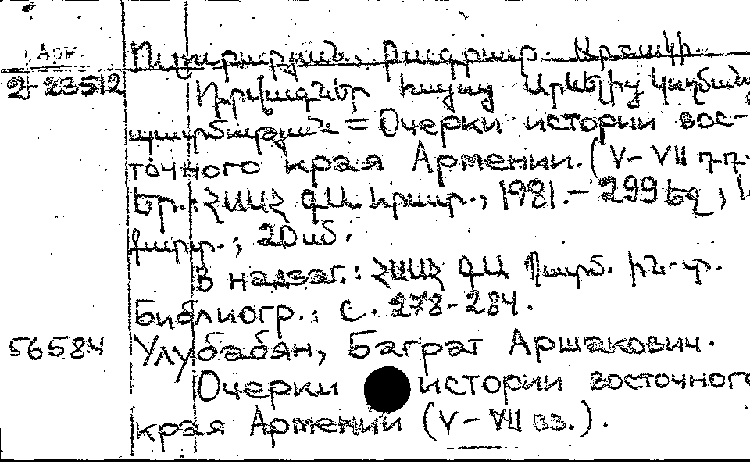 Арм
2-23512
Ուլուբաբյան, Բագրատ Արշակի.
Դրվագներ հայոց Արևելից կողմանց
պատմության = Очерки истории вос-
точного края Армении. (V-VII դդ.
Եր.: ՀՍՍՀ ԳԱ հրատ., 1981. - 299 էջ, 1
քարտ.; 20 սմ.
В надзаг.: ՀՍՍՀ ԳԱ Պատմ. ին-տ.
Библиогр.: с. 278-284.
56584 Улубабян, Баграт Аршакович.
Очерки истории восточного
края Армении (V-VII вв.).